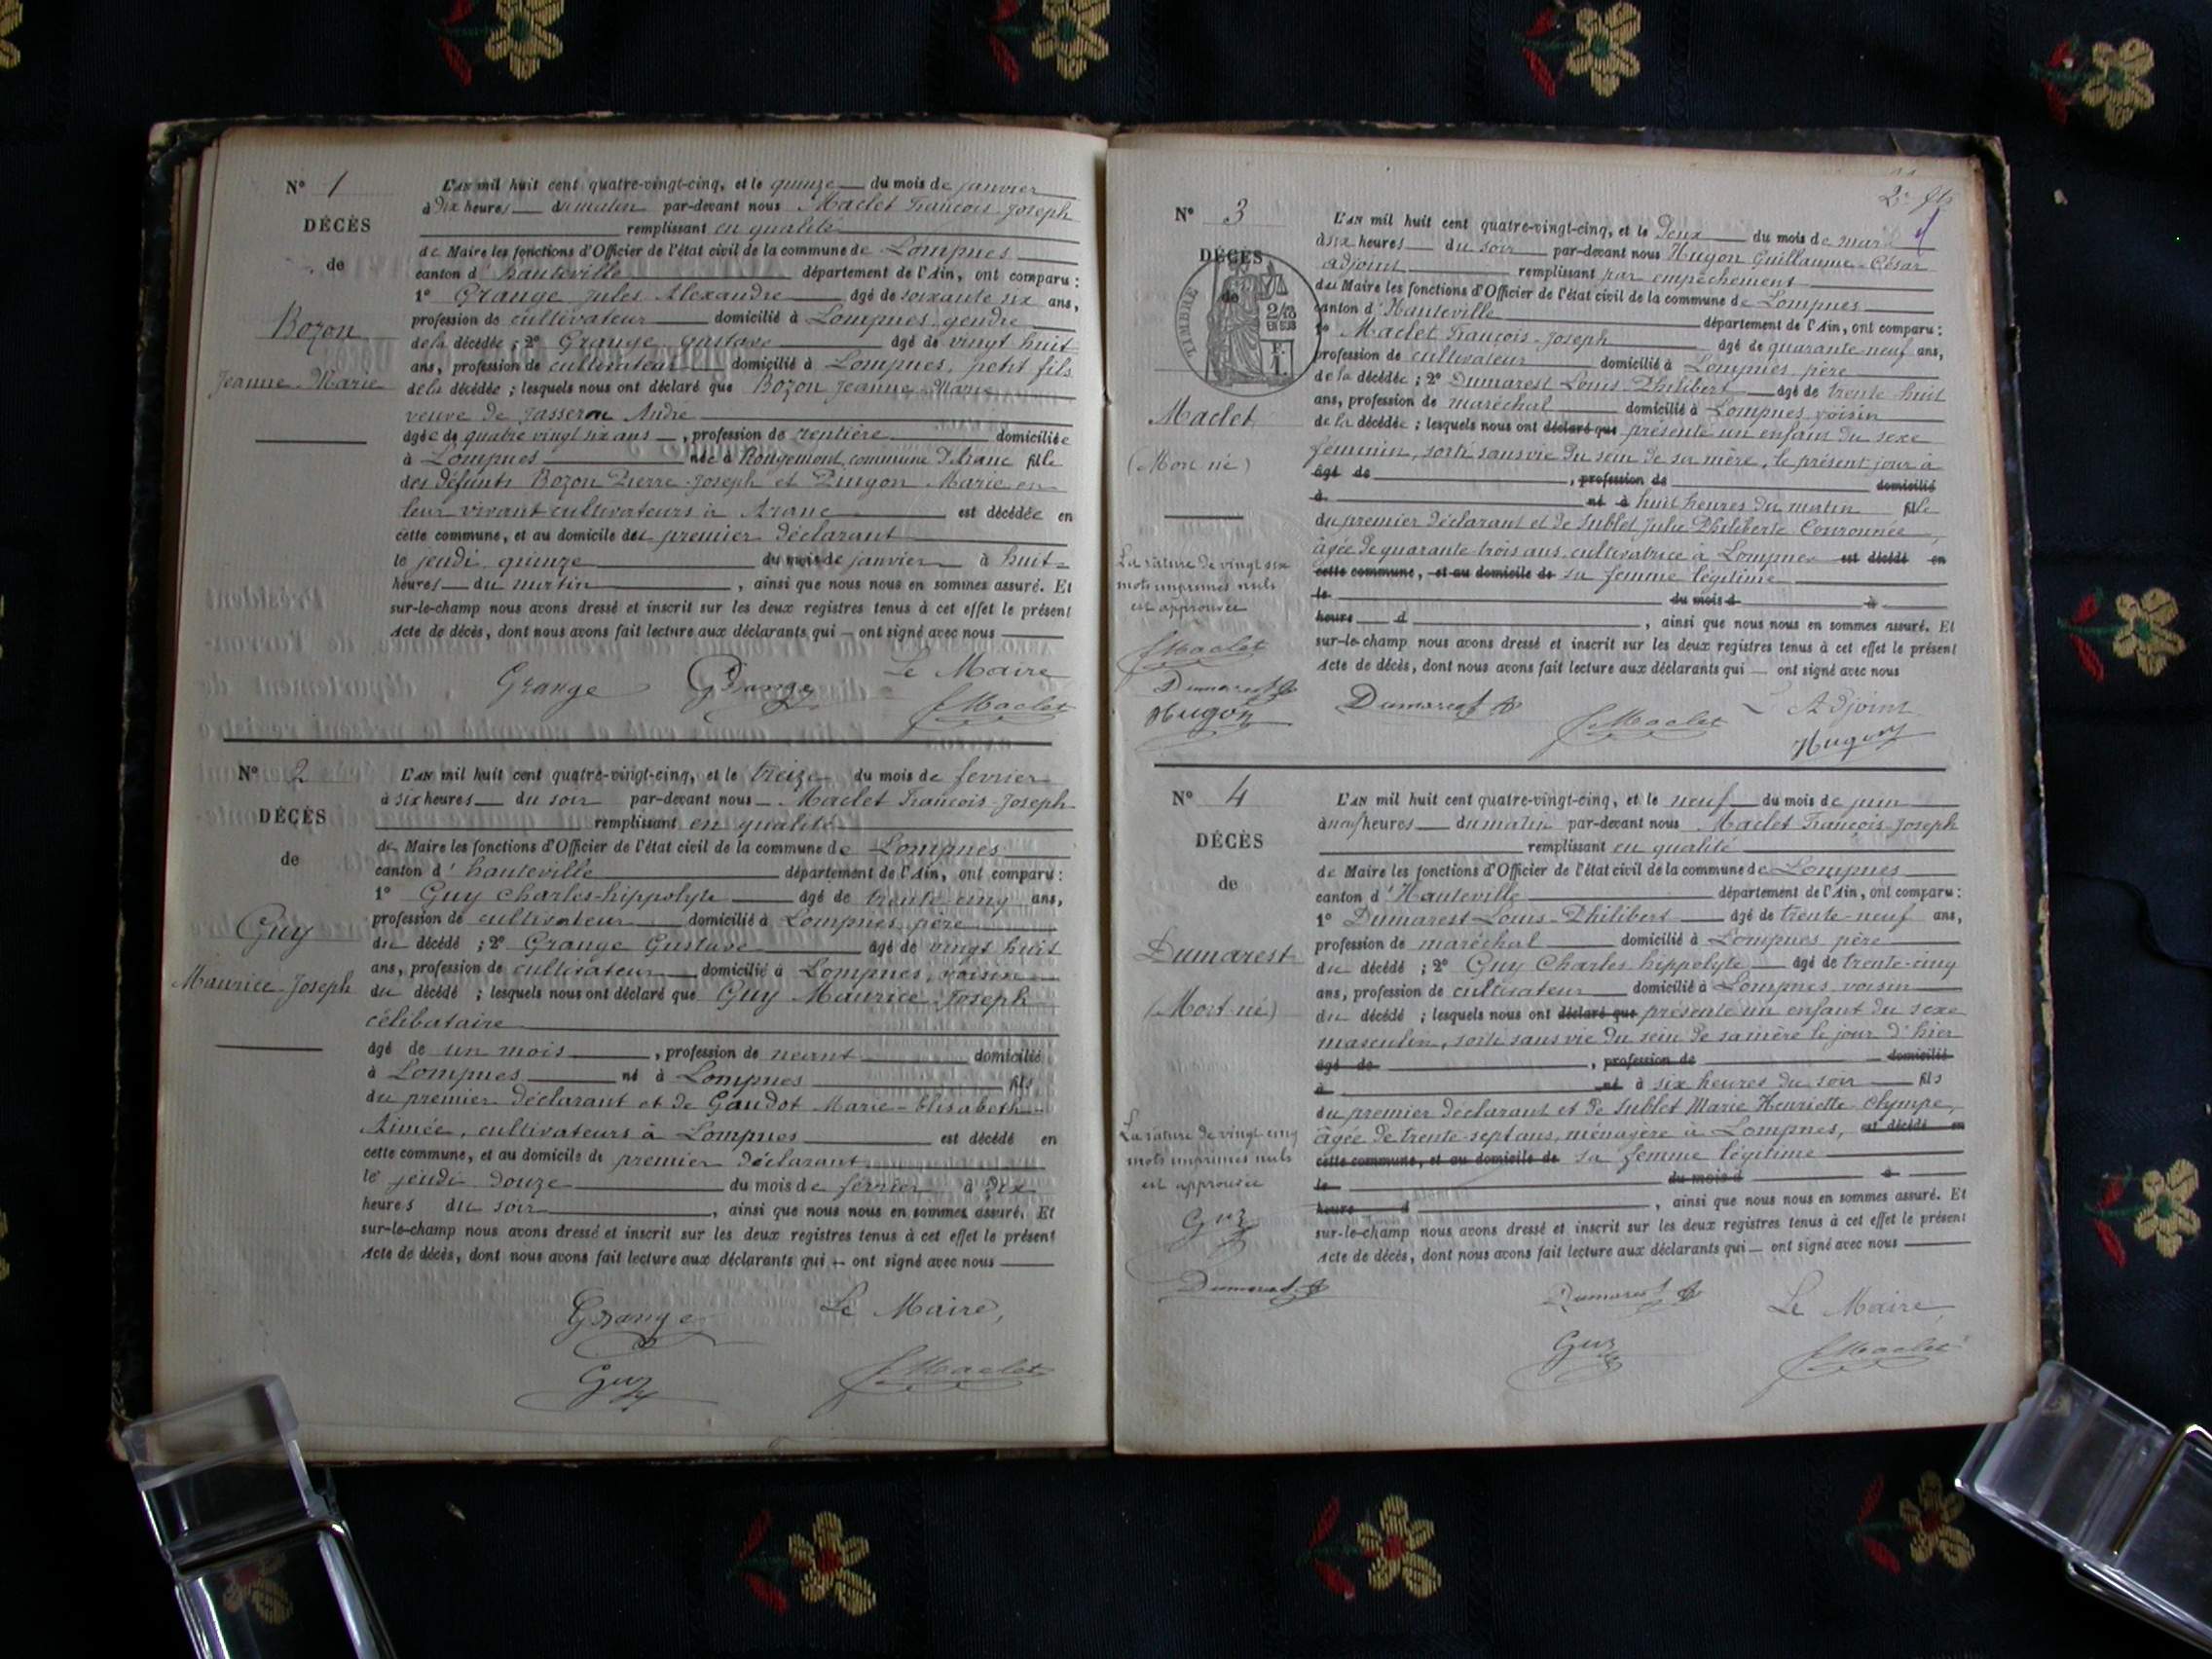 N° 1
DÉCÈS
de
Bozon
Jeanne-Marie
L'AN mil huit cent quatre-vingt-cinq, et le quinze du mois de janvier
à dix heures du matin par-devant nous Maclet François-Joseph
remplissant en qualité
de Maire les fonctions d'Officier de l'état civil de la commune de Lompnes
canton d'hauteville département de l'Ain, ont comparu :
1° Grange Jules Alexandre âgé de soixante six ans,
profession de cultivateur domicilié à Lompnes, gendre
de la décédée ; 2° Grange Gustave âgé de vingt huit
ans, profession de cultivateur domicilié à Lompnes, petit fils
de la décédée ; lesquels nous ont déclaré que Bozon Jeanne-Marie
veuve de Jasseron André
âgée de quatre vingt six ans, profession de rentière domiciliée
à Lompnes née à Rougemont, commune d'Aranc fille
des défunts Bozon Pierre-Joseph et Pingon Marie en
leur vivant cultivateurs à Aranc est décédée en
cette commune, et au domicile du premier déclarant
le jeudi quinze du mois de janvier à huit
heures du matin, ainsi que nous nous en sommes assuré. Et
sur-le-champ nous avons dressé et inscrit sur les deux registres tenus à cet effet le présent
Acte de décès, dont nous avons fait lecture aux déclarants qui — ont signé avec nous
Le Maire
Grange Grange JMaclet
N° 2
DÉCÈS
de
Guy
Maurice-Joseph
L'AN mil huit cent quatre-vingt-cinq, et le treize du mois de fevrier
à six heures du soir par-devant nous Maclet François-Joseph
remplissant en qualité
de Maire les fonctions d'Officier de l'état civil de la commune de Lompnes
canton d'hauteville département de l'Ain, ont comparu :
1° Guy Charles-hippolyte âgé de trente-cinq ans,
profession de cultivateur domicilié à Lompnes, père
du décédé ; 2° Grange Gustave âgé de vingt huit
ans, profession de cultivateur domicilié à Lompnes, voisin
du décédé ; lesquels nous ont déclaré que Guy Maurice-Joseph
célibataire
âgé de un mois, profession de néant domicilié
à Lompnes né à Lompnes fils
du premier déclarant et de Gaudot Marie-Elisabeth-
Aimée, cultivateurs à Lompnes est décédé en
cette commune, et au domicile de premier déclarant
le jeudi douze du mois de février à dix
heures du soir, ainsi que nous nous en sommes assuré. Et
sur-le-champ nous avons dressé et inscrit sur les deux registres tenus à cet effet le présent
Acte de décès, dont nous avons fait lecture aux déclarants qui — ont signé avec nous
Grange Le Maire,
Guy JMaclet
N° 3
DÉCÈS
de
TIMBRE
2/10
EN SUS
F.
1.
Maclet
(Mort né)
La rature de vingt six
mots imprimés nuls
est approuvée
JMaclet
Dumarest
Hugon
L'AN mil huit cent quatre-vingt-cinq, et le deux du mois de mars
à six heures du soir par-devant nous Hugon Guillaume-César
adjoint remplissant par empêchement
du Maire les fonctions d'Officier de l'état civil de la commune de Lompnes
canton d'Hauteville département de l'Ain, ont comparu :
1° Maclet François-Joseph âgé de quarante-neuf ans,
profession de cultivateur domicilié à Lompnes, père
de la décédée ; 2° Dumarest Louis-Philibert âgé de trente-huit
ans, profession de maréchal domicilié à Lompnes, voisin
de la décédée ; lesquels nous ont déclaré que présenté un enfant du sexe
féminin, sorti sans vie du sein de sa mère, le présent jour à
âgé de, profession de domicilié
à né à huit heures du matin fille
du premier déclarant et de Sublet Julie Philiberte Couronnée,
âgée de quarante-trois ans, cultivatrice à Lompnes est décédé en
cette commune, et au domicile de sa femme légitime
le du mois d à
heure d, ainsi que nous nous en sommes assuré. Et
sur-le-champ nous avons dressé et inscrit sur les deux registres tenus à cet effet le présent
Acte de décès, dont nous avons fait lecture aux déclarants qui — ont signé avec nous
Dumarest JMaclet Adjoint
Hugon
N° 4
DÉCÈS
de
Dumarest
(Mort-né)
La rature de vingt-cinq
mots imprimés nuls
est approuvée
Guy
Dumarest
L'AN mil huit cent quatre-vingt-cinq, et le neuf du mois de juin
à neuf heures du matin par-devant nous Maclet François-Joseph
remplissant en qualité
de Maire les fonctions d'Officier de l'état civil de la commune de Lompnes
canton d'Hauteville département de l'Ain, ont comparu :
1° Dumarest Louis-Philibert âgé de trente-neuf ans,
profession de maréchal domicilié à Lompnes, père
du décédé ; 2° Guy Charles hippolyte âgé de trente-cinq
ans, profession de cultivateur domicilié à Lompnes, voisin
du décédé ; lesquels nous ont déclaré que présenté un enfant du sexe
masculin, sorti sans vie du sein de sa mère le jour d'hier
âgé de, profession de domicilié
à né à six heures du soir fils
du premier déclarant et de Sublet Marie Henriette Olympe,
âgée de trente-sept ans, ménagère à Lompnes, est décédé en
cette commune, et au domicile de sa femme légitime
le du mois d à
heure d, ainsi que nous nous en sommes assuré. Et
sur-le-champ nous avons dressé et inscrit sur les deux registres tenus à cet effet le présent
Acte de décès, dont nous avons fait lecture aux déclarants qui — ont signé avec nous
Dumarest Le Maire
Guy JMaclet